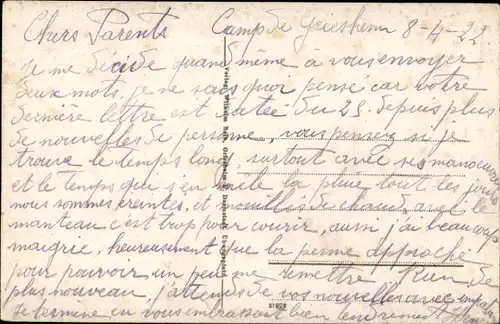 Chers Parents Camp de Griesheim 8-4-22
Je me décide quand même à vous envoyer
deux mots, je ne sais quoi pensé car votre
dernière lettre est datée du 25. depuis plus
de nouvelles de personne, vous pensez si je
trouve le temps long, surtout avec ses manoeuvres
et le temps qui s'en mêle la pluie tout les jours
nous sommes éreintés, et mouillés de chaud, avec le
manteau c'est trop pour courir, aussi j'ai beaucoup
maigrie, heureusement que la perme approche
pour pouvoir un peu me remettre Rien de
plus nouveau, j'attends de vos nouvelles avec
Je termine en vous embrassant bien tendrement